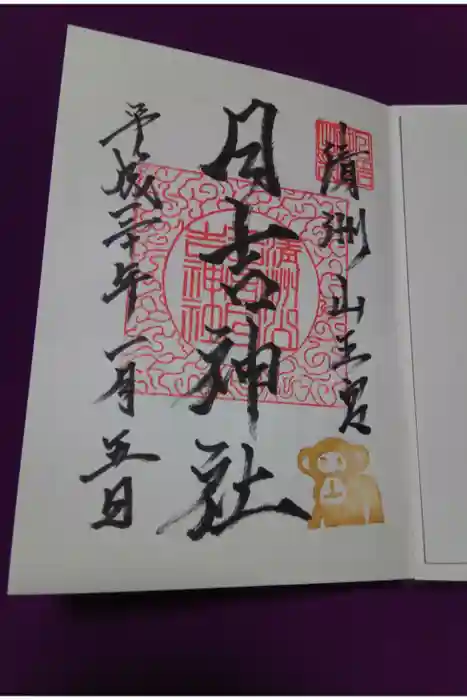 清洲山王宮
日吉神社
平成三十年一月五日
清洲山
王宮日
吉神社